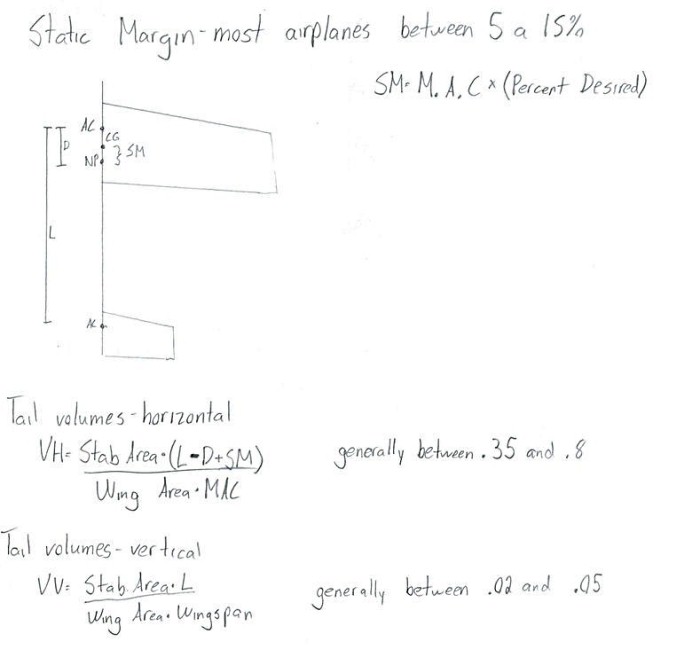 Static Margin - most airplanes between 5 a 15%
SM= M.A.C × (Percent Desired)
AC
CG
D
NP } SM
L
AC
Tail volumes - horizontal
VH= Stab Area·(L-D+SM)
Wing Area·MAC
generally between .35 and .8
Tail volumes - vertical
VV= Stab Area·L
Wing Area·Wingspan
generally between .02 and .05